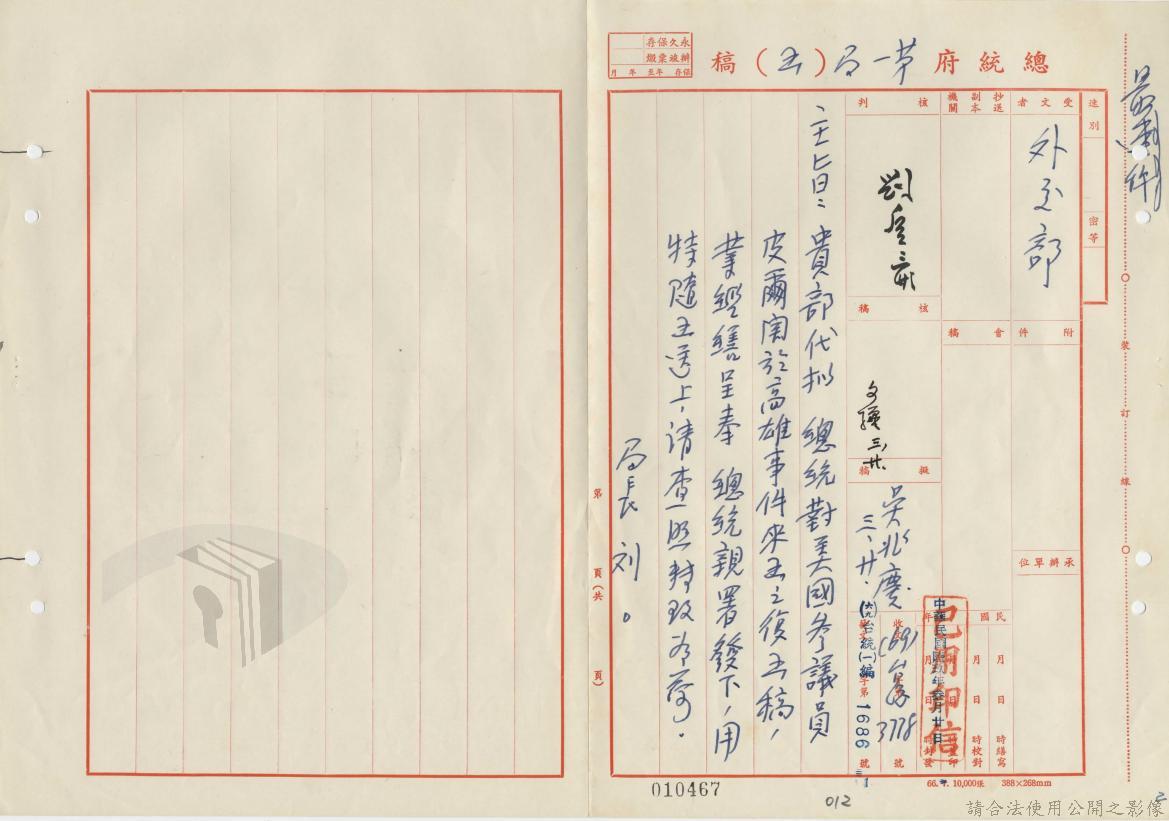 最速件
總統府第一局（函）稿
永久保存
辦竣彙繳
保存 年至 年 月
速別
密等
受文者
外交部
抄送副本機關
附件
會稿
承辦單位
核判
核稿
擬稿
吳兆慶
三、廿、
主旨：貴部代擬 總統對美國參議員
皮爾關於高雄事件來函之復函稿，
業經繕呈奉 總統親署發下，用
特隨函送上，請查照轉致為荷。
局長 刘 。
民國 年
月 日 時繕寫
月 日 時校對
月 日 時蓋印
月 日 時封發
中華民國陸玖年叁月廿日
已用印信
(69)台
3778
號
(六九)台統(一)編
字第
1686
號
第 頁（共 頁）
裝
訂
線
66. 7. 10,000張 388×268mm
010467
012
2
請合法使用公開之影像